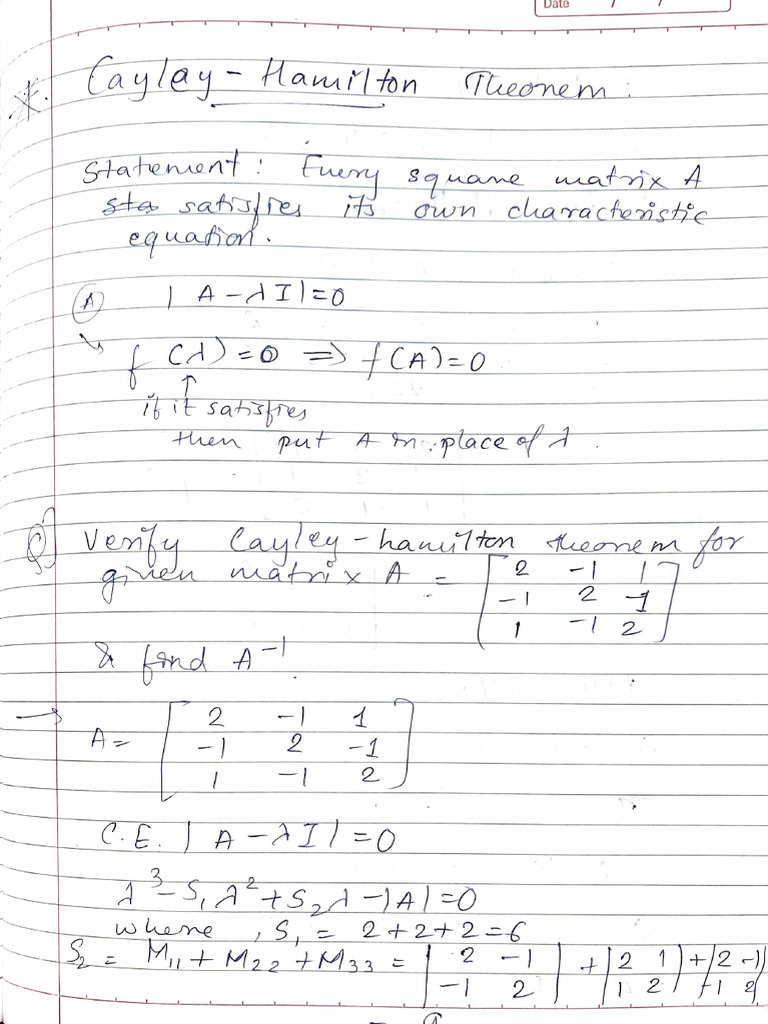 Date / /
*. Cayley-Hamilton Theorem:
Statement: Every square matrix A
sta satisfies its own characteristic
equation.
(A) |A-λI|=0
f(λ)=0 ⇒ f(A)=0
↑
if it satisfies
then put A in place of λ.
Q] Verify Cayley-hamilton theorem for
given matrix A = [2 -1 1
-1 2 -1
1 -1 2]
& find A⁻¹
→ A= [2 -1 1
-1 2 -1
1 -1 2]
C.E. |A-λI|=0
λ³-S₁λ²+S₂λ-|A|=0
where, S₁ = 2+2+2=6
S₂ = M₁₁+M₂₂+M₃₃ = |2 -1| + |2 1| + |2 -1|
|-1 2| |1 2| |-1 2|